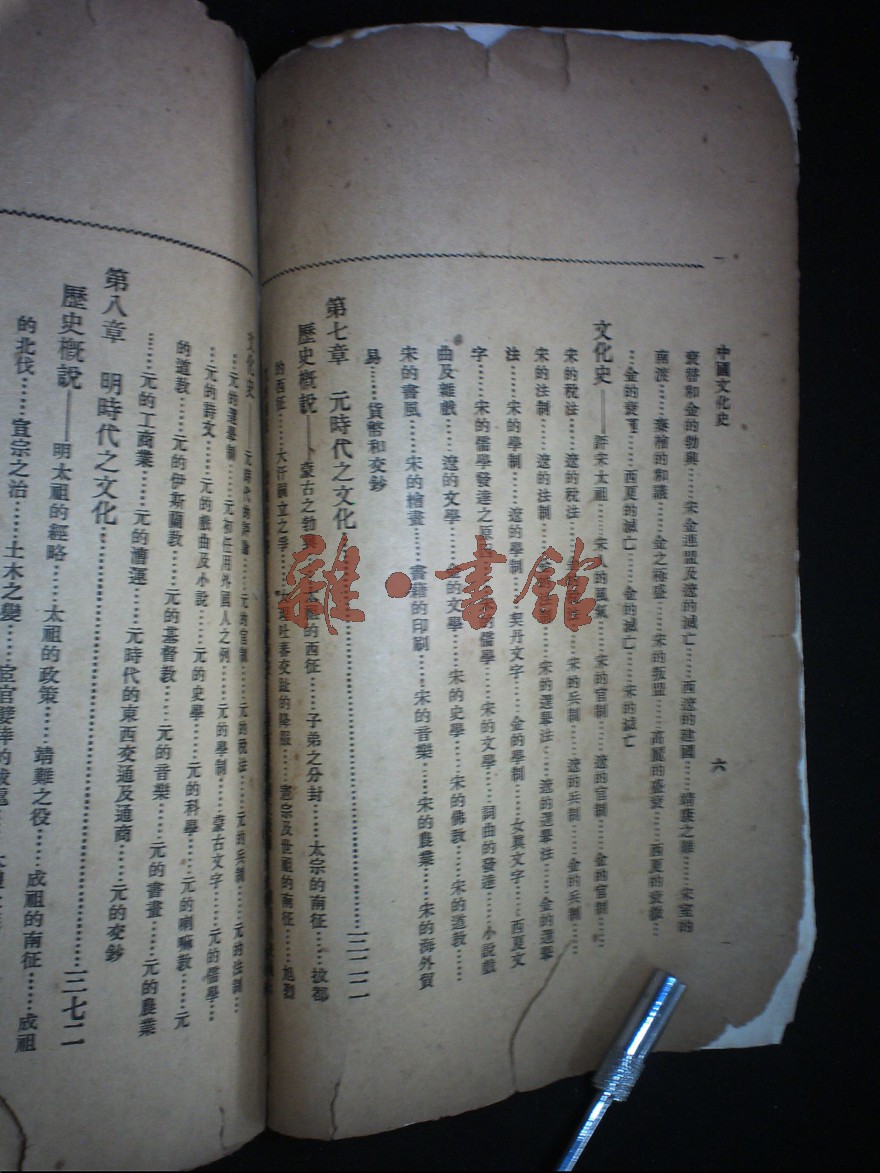 中國文化史
六
衰替和金的勃興……宋金滙盟及遼的滅亡……西遼的建國……靖康之難……宋室的
南渡……秦檜的和議……金之極盛……宋的叛盟……高麗的盛衰……西夏的衰微……
……金的衰……西夏的滅亡……金的滅亡……宋的滅亡
文化史——評宋太祖……宋人的風氣……宋的官制……遼的官制……金的官制……
宋的稅法……遼的稅法……宋的兵制……遼的兵制……金的兵制……
宋的法制……遼的法制……宋的選舉法……遼的選舉法……金的選舉
法……宋的學制……遼的學制……契丹文字……金的學制……女眞文字……西夏文
字……宋的儒學發達之原……的儒學……宋的文學……詞曲的發達……小說戲
曲及雜戲……遼的文學……金的文學……宋的史學……宋的佛敎……宋的道敎……
宋的書風……宋的檜畫……書籍的印刷……宋的音樂……宋的農業……宋的海外貿
易……貨幣和交鈔
第七章 元時代之文化……三二二
歷史槪說——蒙古之勃興……的西征……子弟之分封……太宗的南征……拔都
的西征……大汗嗣立之爭……大理吐蕃交趾的降服……憲宗及世祖的南征……旭烈
文化史——元時代的評論……元的官制……元的稅法……元的兵制……元的法制……
……元的選舉制……元初任用外國人之例……元的學制……蒙古文字……元的儒學……
……元的詩文……元的戲曲及小說……元的史學……元的科學……元的喇嘛敎……元
的道敎……元的伊斯蘭敎……元的基督敎……元的音樂……元的書畫……元的農業
……元的工商業……元的漕運……元時代的東西交通及通商……元的交鈔
第八章 明時代之文化……三七二
歷史槪說——明太祖的經略……太祖的政策……靖難之役……成祖的南征……成祖
的北伐……宣宗之治……土木之變……宦官嬖倖的
雜·書館